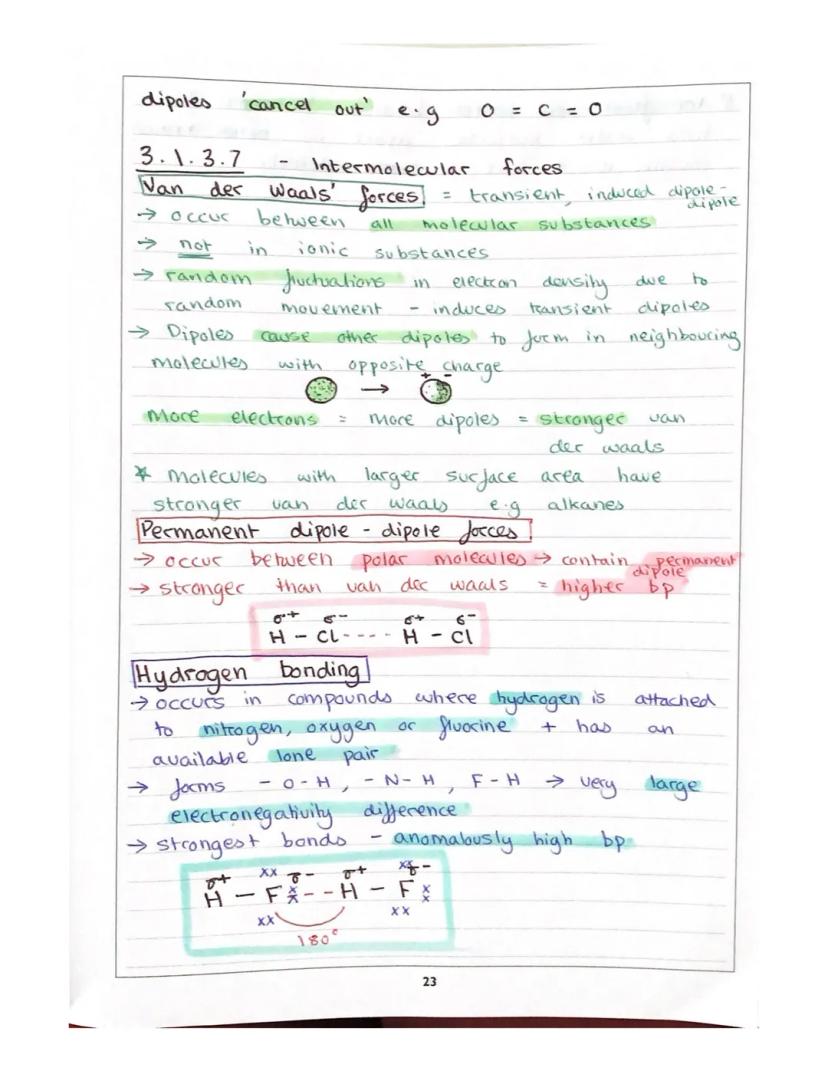 dipoles 'cancel out' e.g O = C = O
3.1.3.7 - Intermolecular forces
Van der Waals' forces = transient, induced dipole-dipole
→ occur between all molecular substances
→ not in ionic substances
→ random fluctuations in electron density due to
random movement - induces transient dipoles
→ Dipoles cause other dipoles to form in neighbouring
molecules with opposite charge
+ -
→
More electrons = more dipoles = stronger van
der waals
* molecules with larger surface area have
stronger van der waals e.g alkanes
Permanent dipole - dipole forces
→ occur between polar molecules → contain permanent dipole
→ stronger than van der waals = higher bp
σ+ σ- σ+ σ-
H - Cl ---- H - Cl
Hydrogen bonding
→ occurs in compounds where hydrogen is attached
to nitrogen, oxygen or fluorine + has an
available lone pair
→ forms - O - H, - N - H, F - H → very large
electronegativity difference
→ strongest bonds - anomalously high bp
σ+ xx σ- σ+ xx σ-
H - F xx -- H - F xx
xx xx
180°
23